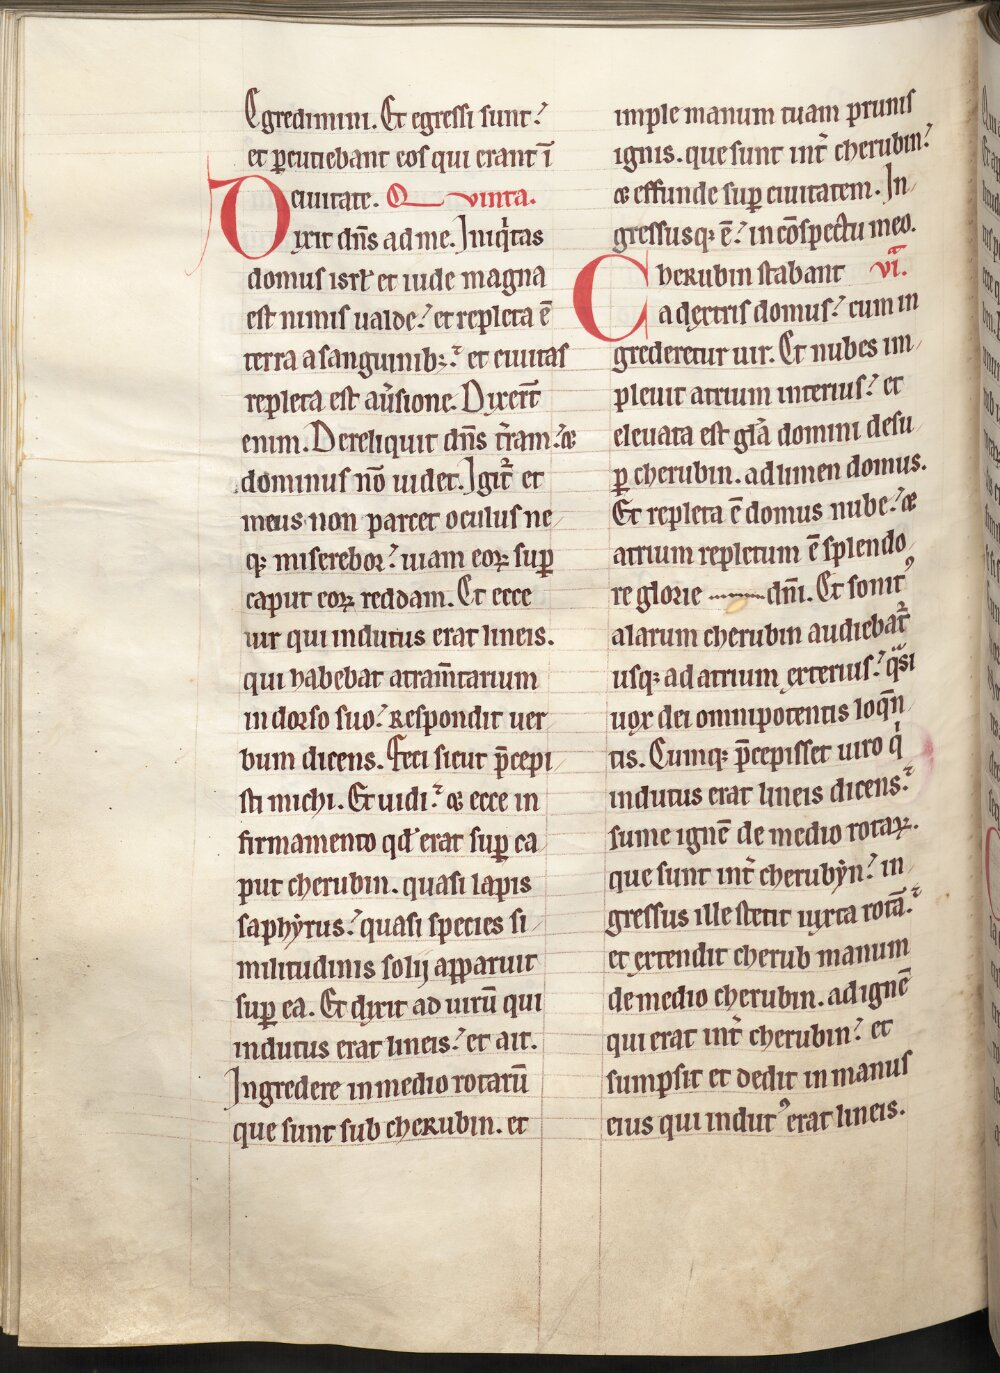 Egredimini. Et egressi sunt?
et ꝑcutiebant eos qui erant ī
ciuitate. Quinta.
Dixit dn̄s ad me. Iniqͥtas
domus isrł et iude magna
est nimis ualde? et repleta ē
terra a sanguinibꝫ? et ciuitas
repleta est au̓sione. Dixer̄t
enim. Dereliquit dn̄s t̓ram? ⁊
dominus nō uidet. Igit᷑ et
meus non parcet oculus ne/
qꝫ miserebor? uiam eoꝝ suꝑ
caput eoꝝ reddam. Et ecce
uir qui indutus erat lineis.
qui habebat atram̄tarium
in dorso suo? Respondit uer
bum dicens. Feci sicut p̄cepi/
sti michi. Et uidi? ⁊ ecce in
firmamento qđ erat suꝑ ca
put cherubin. quasi lapis
saphẏrus? quasi species si/
militudinis solij apparuit
suꝑ ea. Et dixit ad uirū qui
indutus erat lineis? et ait.
Ingredere in medio rotarū
que sunt sub cheRubin. et
imple manum tuam prunis
ignis. que sunt int̓ cherubin?
⁊ effunde suꝑ ciuitatem. In/
gressusqꝫ ē? in cōspectu meo.
Cherubin stabant vi.
a dextris domus? cum in
grederetur uir. Et nubes im/
pleuit atrium interius? et
eleuata est glā domini desu/
ꝑ cherubin. ad limen domus.
Et repleta ē domus nube? ⁊
atrium repletum ē splendo/
re glorie dn̄i. Et sonitꝰ
alarum cherubin audiebat᷑
usqꝫ ad atrium exterius? qᷓsi
uox dei omnipotentis loqn̄/
tis. Cumqꝫ p̄cepisset uiro qͥ
indutus erat lineis dicens?
sume ignē de medio rotaꝝ.
que sunt int̓ cherubẏn? in/
gressus ille stetit iuxta rotā?
et extendit cherub manum
de medio cherubin. ad ignē
qui erat int̓ cherubin? et
sumpsit et dedit in manus
eius qui indutꝰ erat lineis.